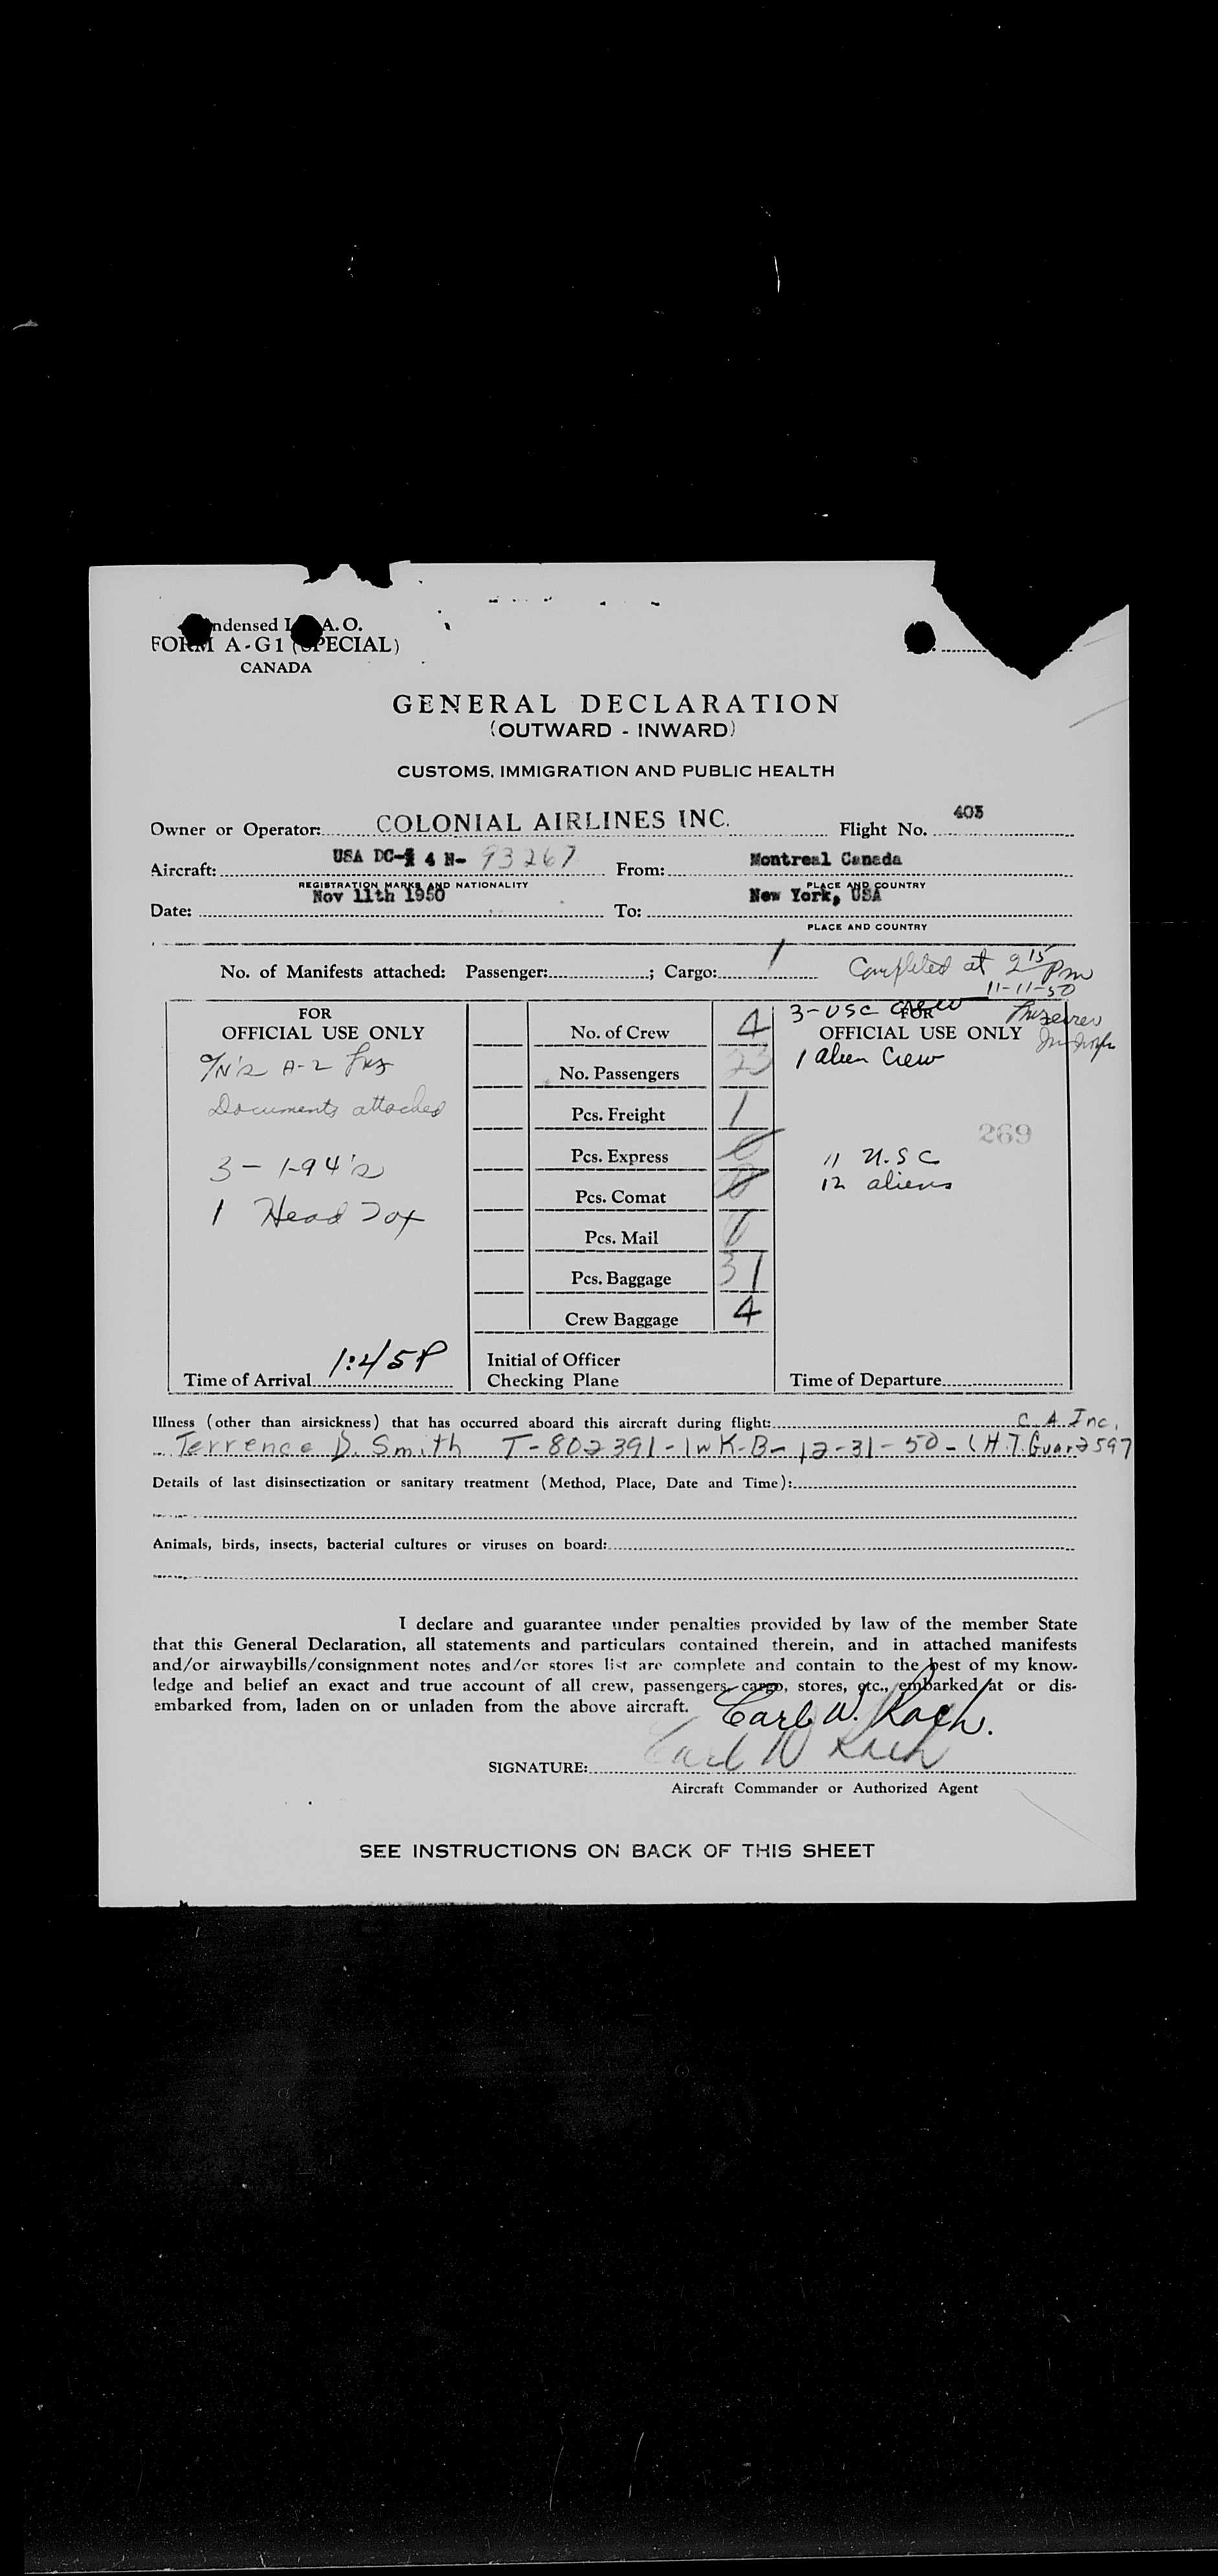 ndensed I. A. O.
FORM A-G1 (SPECIAL)
CANADA
GENERAL DECLARATION
(OUTWARD - INWARD)
CUSTOMS, IMMIGRATION AND PUBLIC HEALTH
Owner or Operator: COLONIAL AIRLINES INC. Flight No. 403
Aircraft: USA DC- 4 N- 93267 From: Montreal Canada
REGISTRATION MARKS AND NATIONALITY PLACE AND COUNTRY
Date: Nov 11th 1950 To: New York, USA
PLACE AND COUNTRY
No. of Manifests attached: Passenger: ; Cargo: 1 Completed at 2 15 Pm
11-11-50
3-USC Crew
FOR OFFICIAL USE ONLY
A-2
Documents attached
3 - 1-94's
1 Head Tax
Time of Arrival 1:45P
No. of Crew 4
No. Passengers 23
Pcs. Freight 1
Pcs. Express 0
Pcs. Comat 0
Pcs. Mail
Pcs. Baggage 31
Crew Baggage 4
Initial of Officer
Checking Plane
FOR
OFFICIAL USE ONLY
1 alien Crew
269
11 U.S C
12 aliens
Time of Departure
Illness (other than airsickness) that has occurred aboard this aircraft during flight: C A Inc.
Terrence D. Smith T-802391-1WK-B-12-31-50-
Details of last disinsectization or sanitary treatment (Method, Place, Date and Time):
Animals, birds, insects, bacterial cultures or viruses on board:
I declare and guarantee under penalties provided by law of the member State
that this General Declaration, all statements and particulars contained therein, and in attached manifests
and/or airwaybills/consignment notes and/or stores list are complete and contain to the best of my know-
ledge and belief an exact and true account of all crew, passengers, cargo, stores, etc., embarked at or dis-
embarked from, laden on or unladen from the above aircraft.
Carl W. Koch.
Carl W Koch
SIGNATURE:
Aircraft Commander or Authorized Agent
SEE INSTRUCTIONS ON BACK OF THIS SHEET